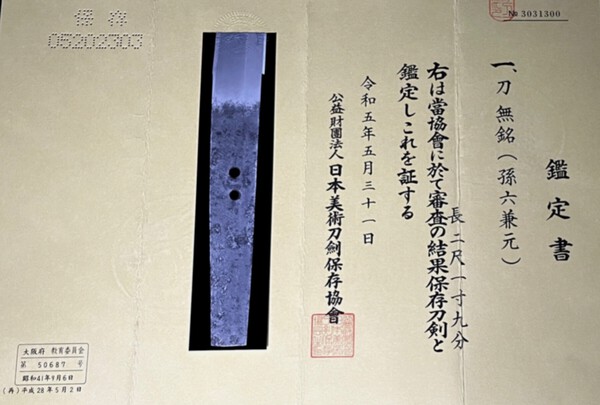 № 3031300
鑑定書
一、刀 無銘(孫六兼元)
長 二尺一寸九分
右は當協會に於て審査の結果保存刀剣と
鑑定しこれを証する
令和五年五月三十一日
公益財團法人 日本美術刀劍保存協會
保存
05202303
大阪府 教育委員会
第 50687 号
昭和41年9月6日
(再)平成28年5月2日